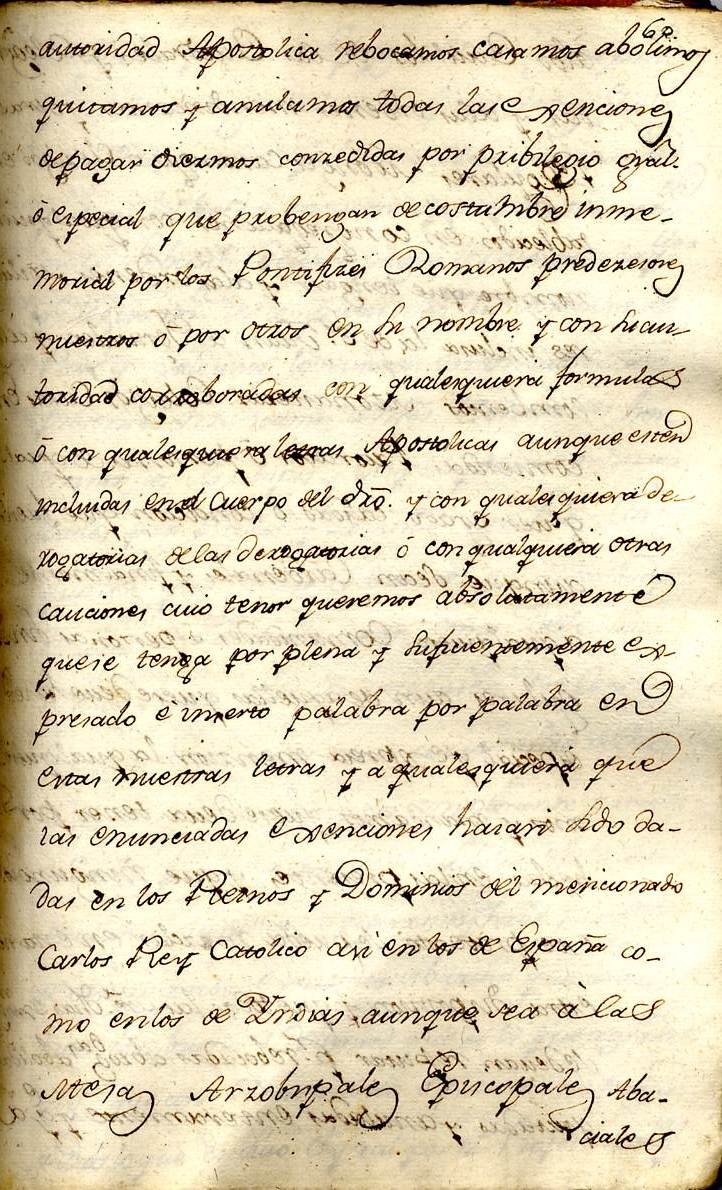 60
autoridad Apostolica rebocamos casamos abolimos
quitamos y anulamos todas las exenciones
de pagar diezmos conzedidas por pribilegio gral.
ò especial que probengan de costumbre inme-
morial por los Pontifizes Romanos predezesores
nuestros ò por otros en su nombre y con su au-
toridad corroboradas con qualesquiera formulas
ò con qualesquiera letras Apostolicas aunque esten
incluidas en el Cuerpo del dro. y con qualesquiera de-
rogatorias de las derogatorias ò con qualquiera otras
cauciones cuio tenor queremos absolutamente
que se tenga por plena y sufizientemente ex
presado è inserto palabra por palabra en
estas nuestras letras y a qualesquiera que
las enunciadas exenciones haian sido da-
das en los Reinos y Dominios del mencionado
Carlos Rey Catolico asi en los de España co-
mo en los de Yndias aunque sea à las
Mesas Arzobispales Episcopales Aba-
ciales